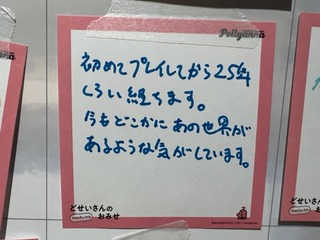 Pollyanna
初めてプレイしてから25年
くらい経ちます。
今もどこかに あの世界が
あるような気がしています。
どせいさんの
おみせ